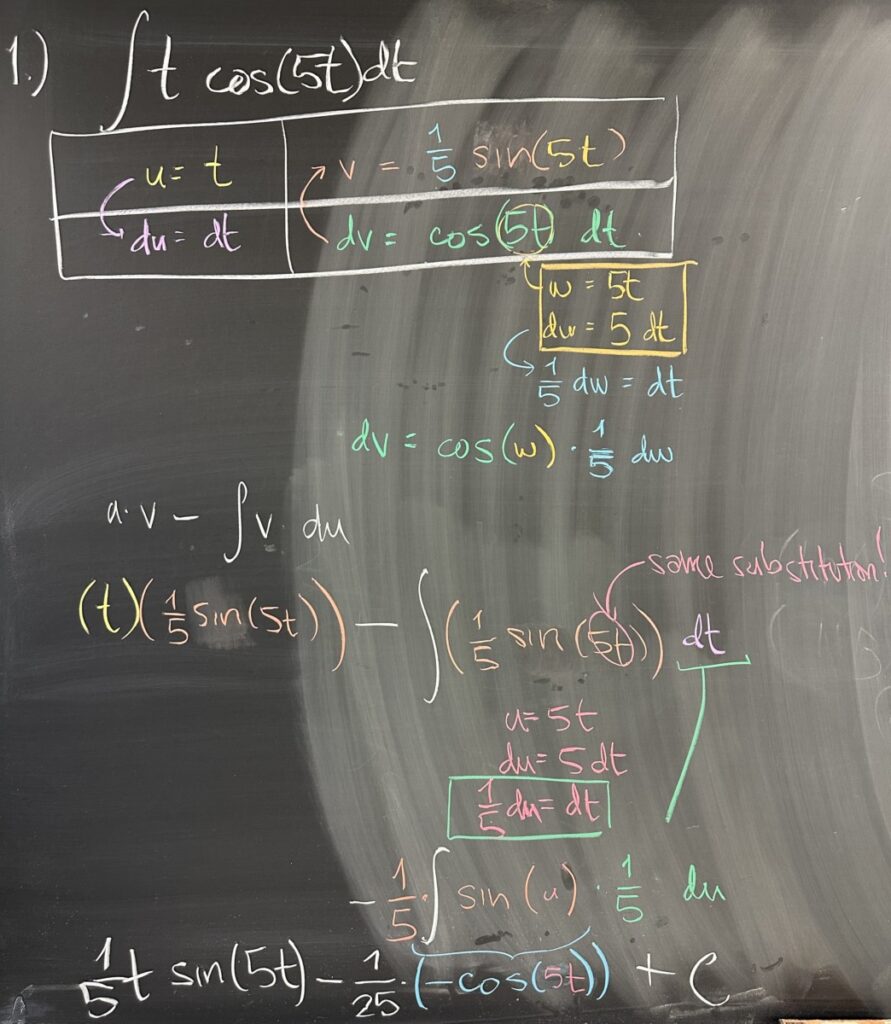 1.) ∫ t cos(5t) dt
u = t v = 1/5 sin(5t)
du = dt dv = cos(5t) dt
w = 5t
dw = 5 dt
1/5 dw = dt
dv = cos(w) · 1/5 dw
u·v − ∫ v· du
same substitution!
(t)(1/5 sin(5t)) − ∫(1/5 sin(5t)) dt
u = 5t
du = 5 dt
1/5 du = dt
− 1/5 · ∫ sin(u) · 1/5 du
1/5 t sin(5t) − 1/25 · (−cos(5t)) + C